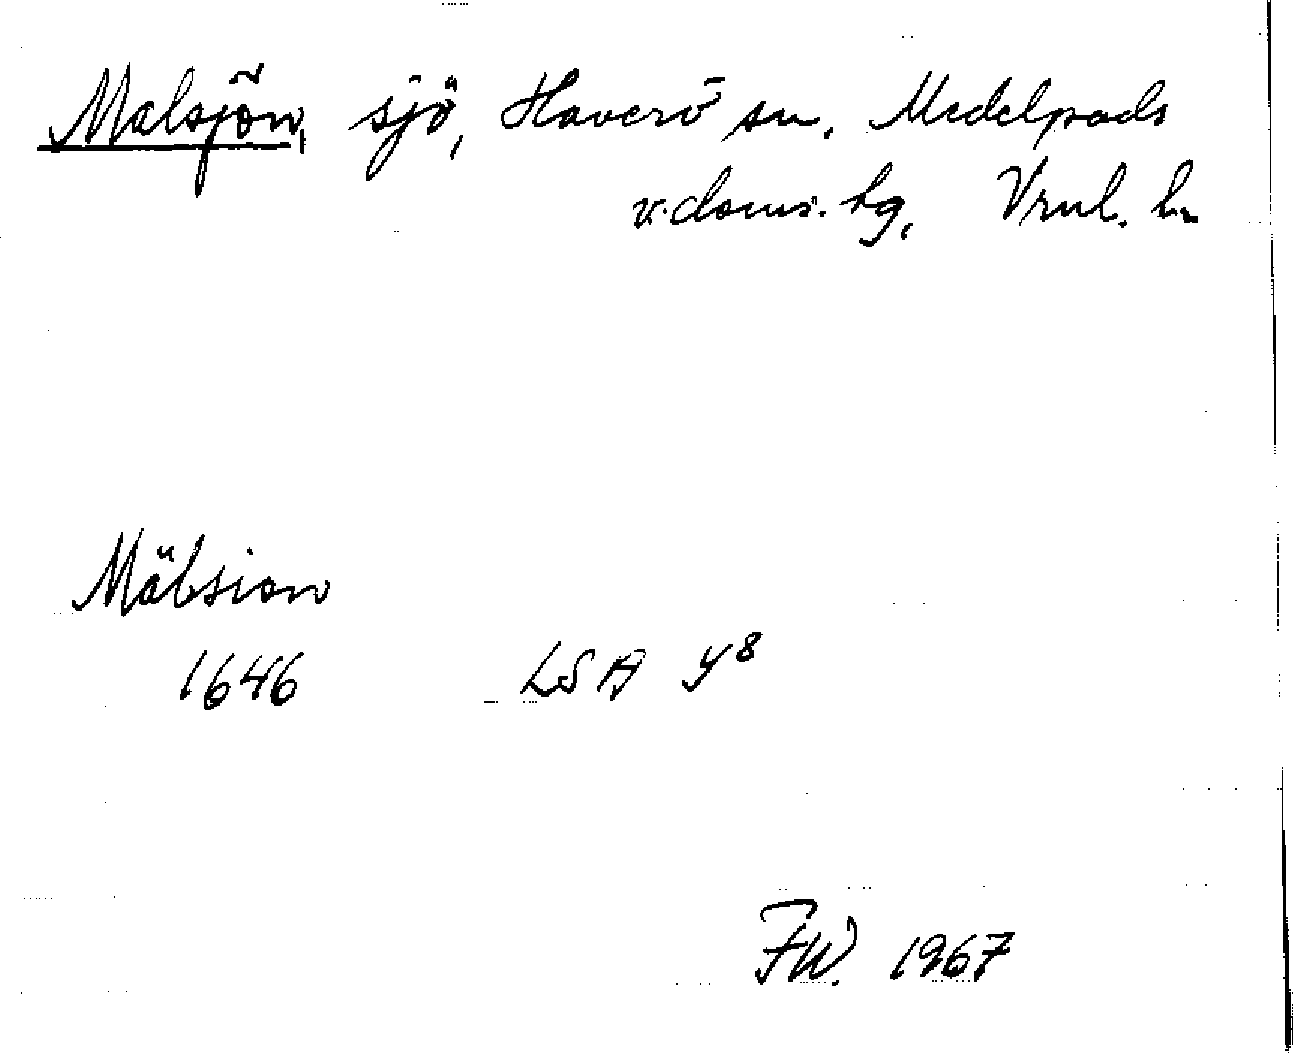 Malsjön, sjö, Haverö sn, Medelpads
v. doms. tg, Vrnl. ln
Mälsion
1646 LSA y8
FW. 1967